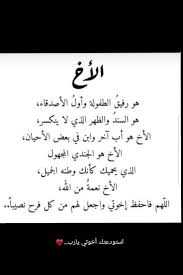 الأخ
هو رفيقُ الطفولة وأولُ الأصدقاء،
هو السندُ والظهر الذي لا ينكسر،
الأخ هو أب آخر وابن في بعض الأحيان،
الأخ هو الجندي المجهول
الذي يحميك كأنك وطنه الجميل،
الأخ نعمةٌ من الله،
اللّهم فاحفظ إخوتي واجعل لهم من كل فرح نصيباً..
استودعتك أخوتي يارب..❤